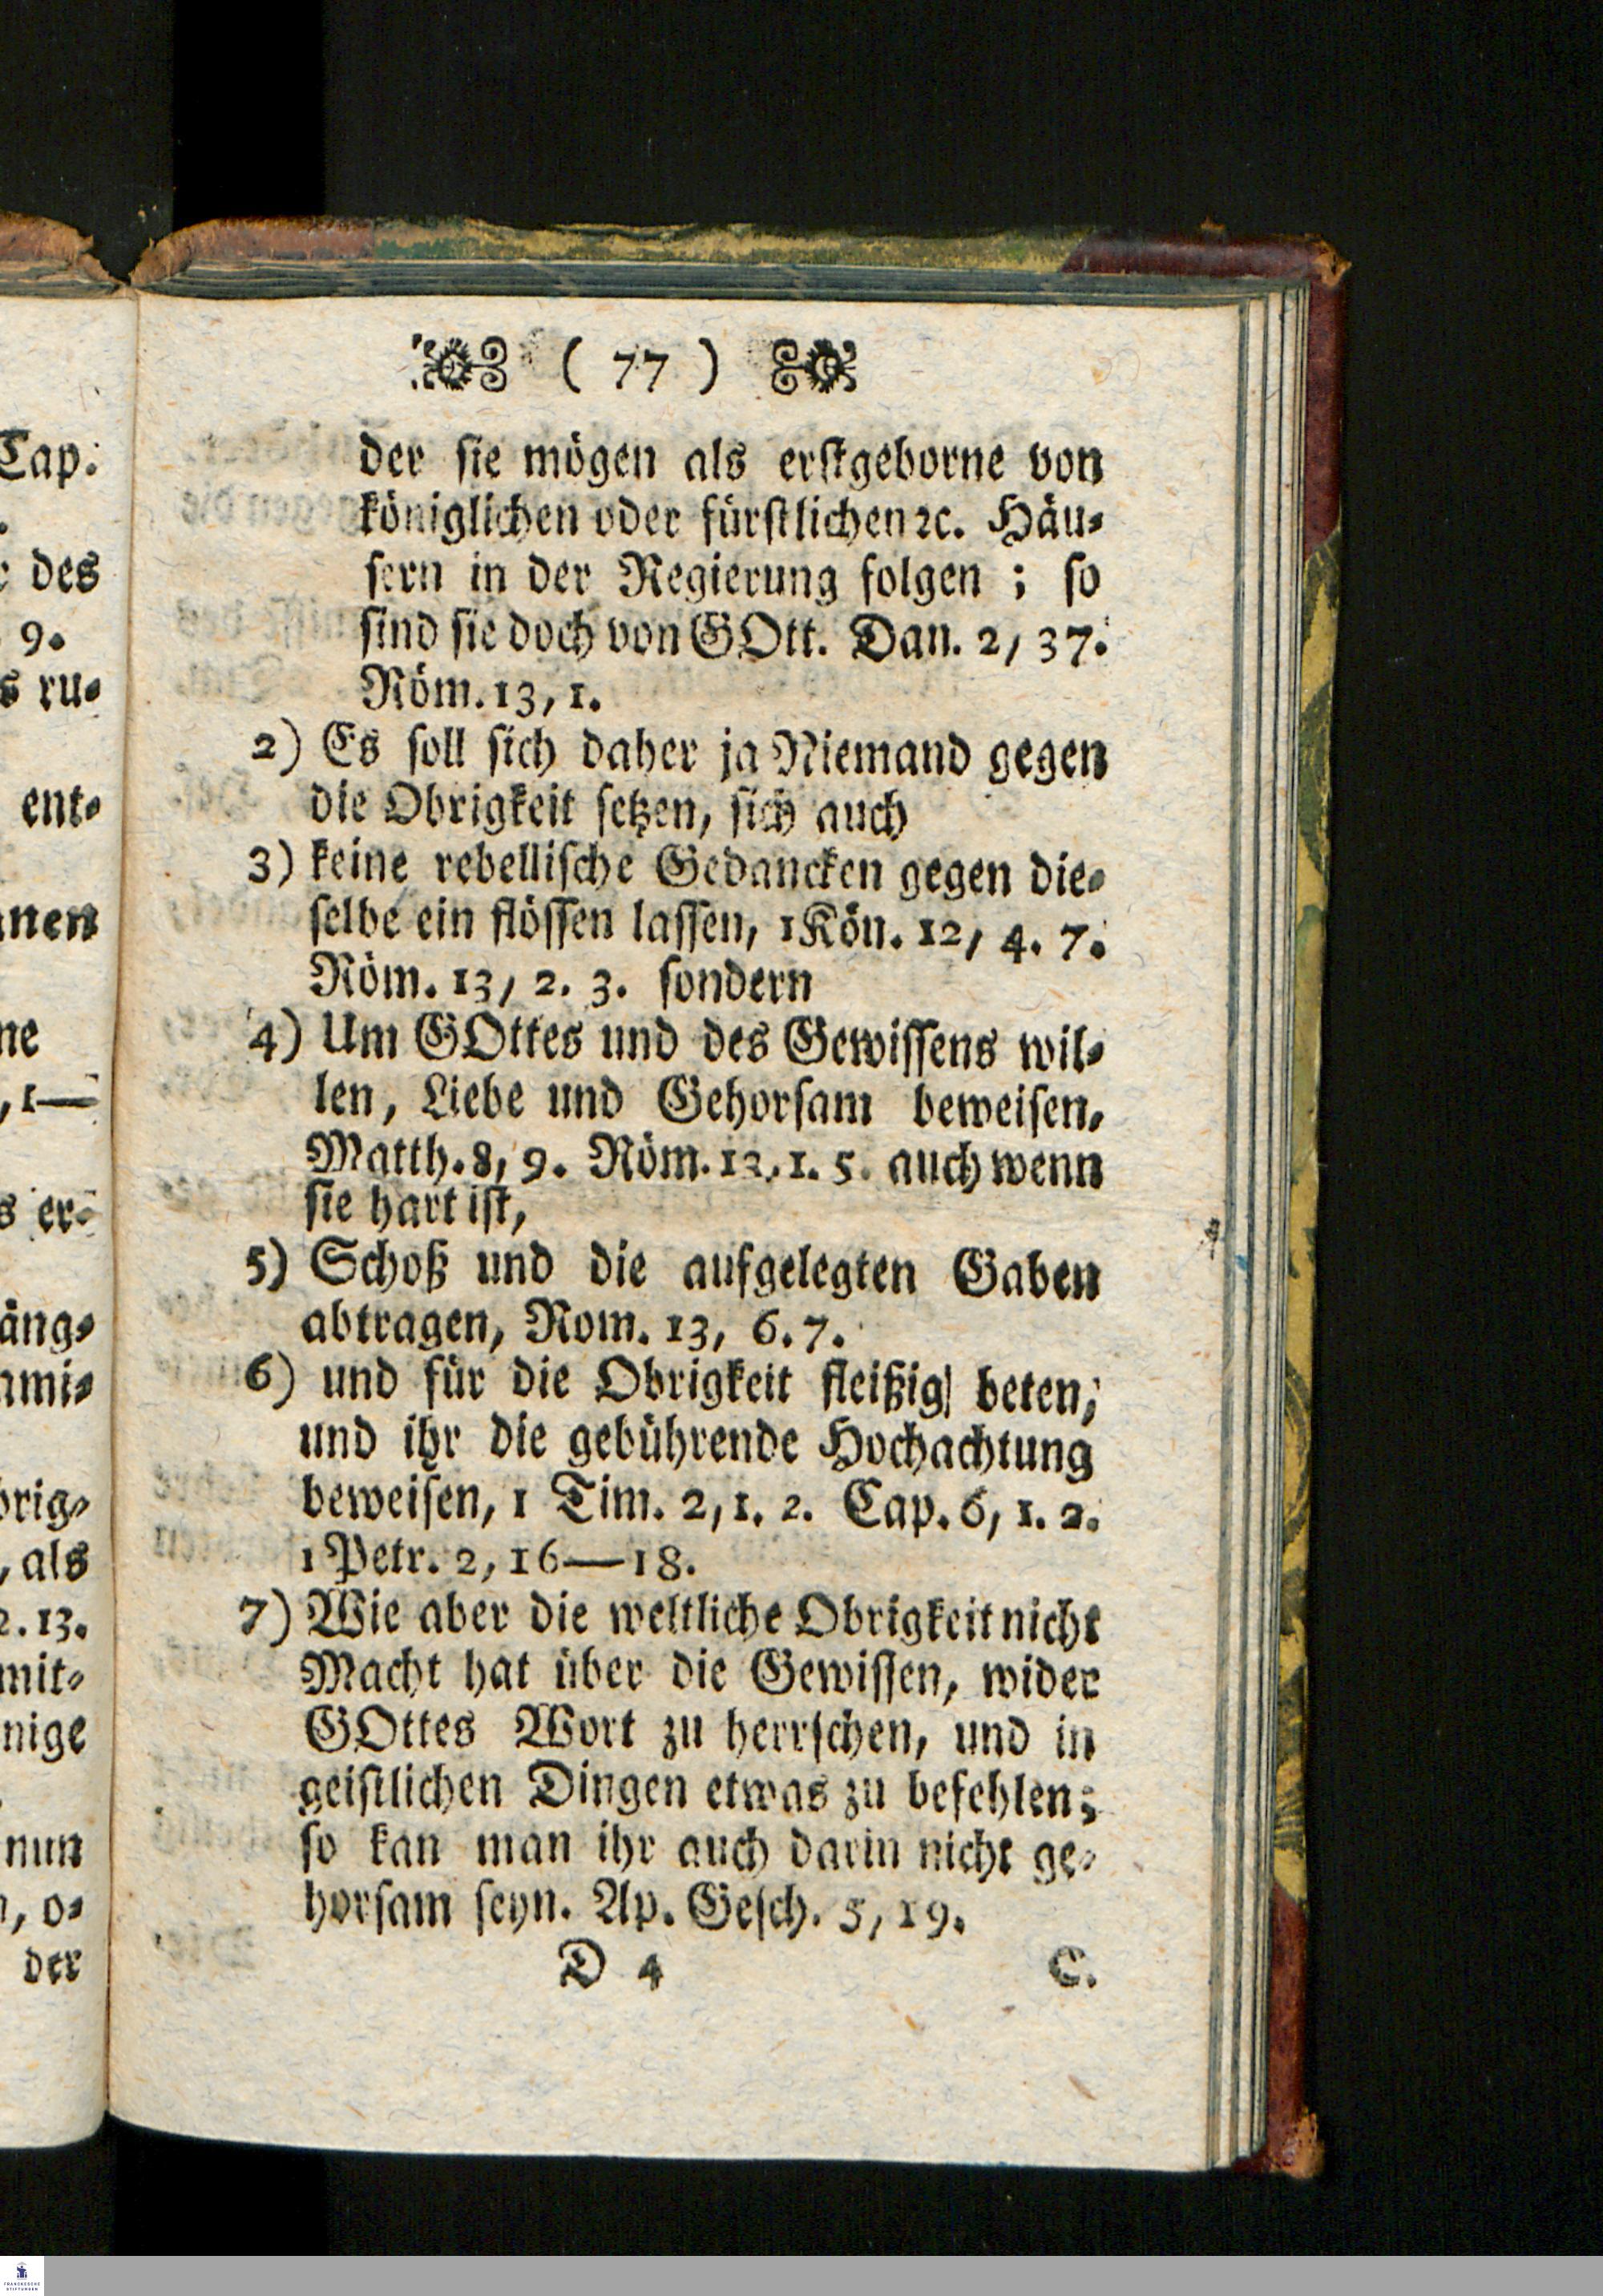 ( 77 )
der sie mögen als erstgeborne von
königlichen oder fürstlichen ꝛc. Häu⸗
sern in der Regierung folgen ; so
sind sie doch von GOtt. Dan. 2, 37.
Röm. 13, 1.
2) Es soll sich daher ja Niemand gegen
die Obrigkeit setzen, sich auch
3) keine rebellische Gedancken gegen die⸗
selbe ein flössen lassen, 1 Kön. 12, 4. 7.
Röm. 13, 2. 3. sondern
4) Um GOttes und des Gewissens wil⸗
len, Liebe und Gehorsam beweisen,
Matth. 8, 9. Röm. 13, 1. 5. auch wenn
sie hart ist,
5) Schoß und die aufgelegten Gaben
abtragen, Rom. 13, 6. 7.
6) und für die Obrigkeit fleißig beten,
und ihr die gebührende Hochachtung
beweisen, 1 Tim. 2, 1. 2. Cap. 6, 1. 2.
1 Petr. 2, 16—18.
7) Wie aber die weltliche Obrigkeit nicht
Macht hat über die Gewissen, wider
GOttes Wort zu herrschen, und in
geistlichen Dingen etwas zu befehlen;
so kan man ihr auch darin nicht ge⸗
horsam seyn. Ap. Gesch. 5, 19.
D 4 C.